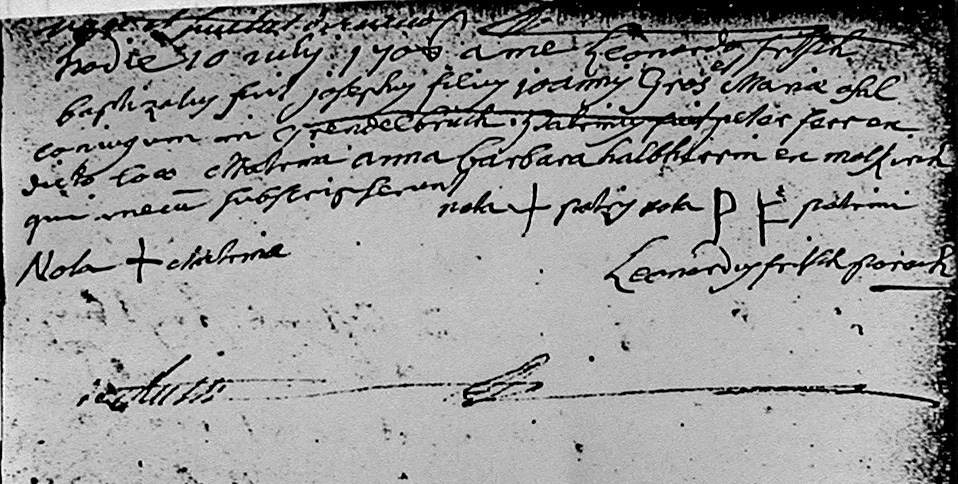 hodie 10 july 1708 a me Leonardo frisch
baptizatus fuit josephus filius joannis Gros et Mariæ
coniugum in Grendelbruch patrinus fuit peter ferr en
dicto loco Matrina anna barbara halbherrin en
qui mecū subscripserunt
nota + patris nota P F patrini
Nota + Matrinæ
Leonardus frisch paroch